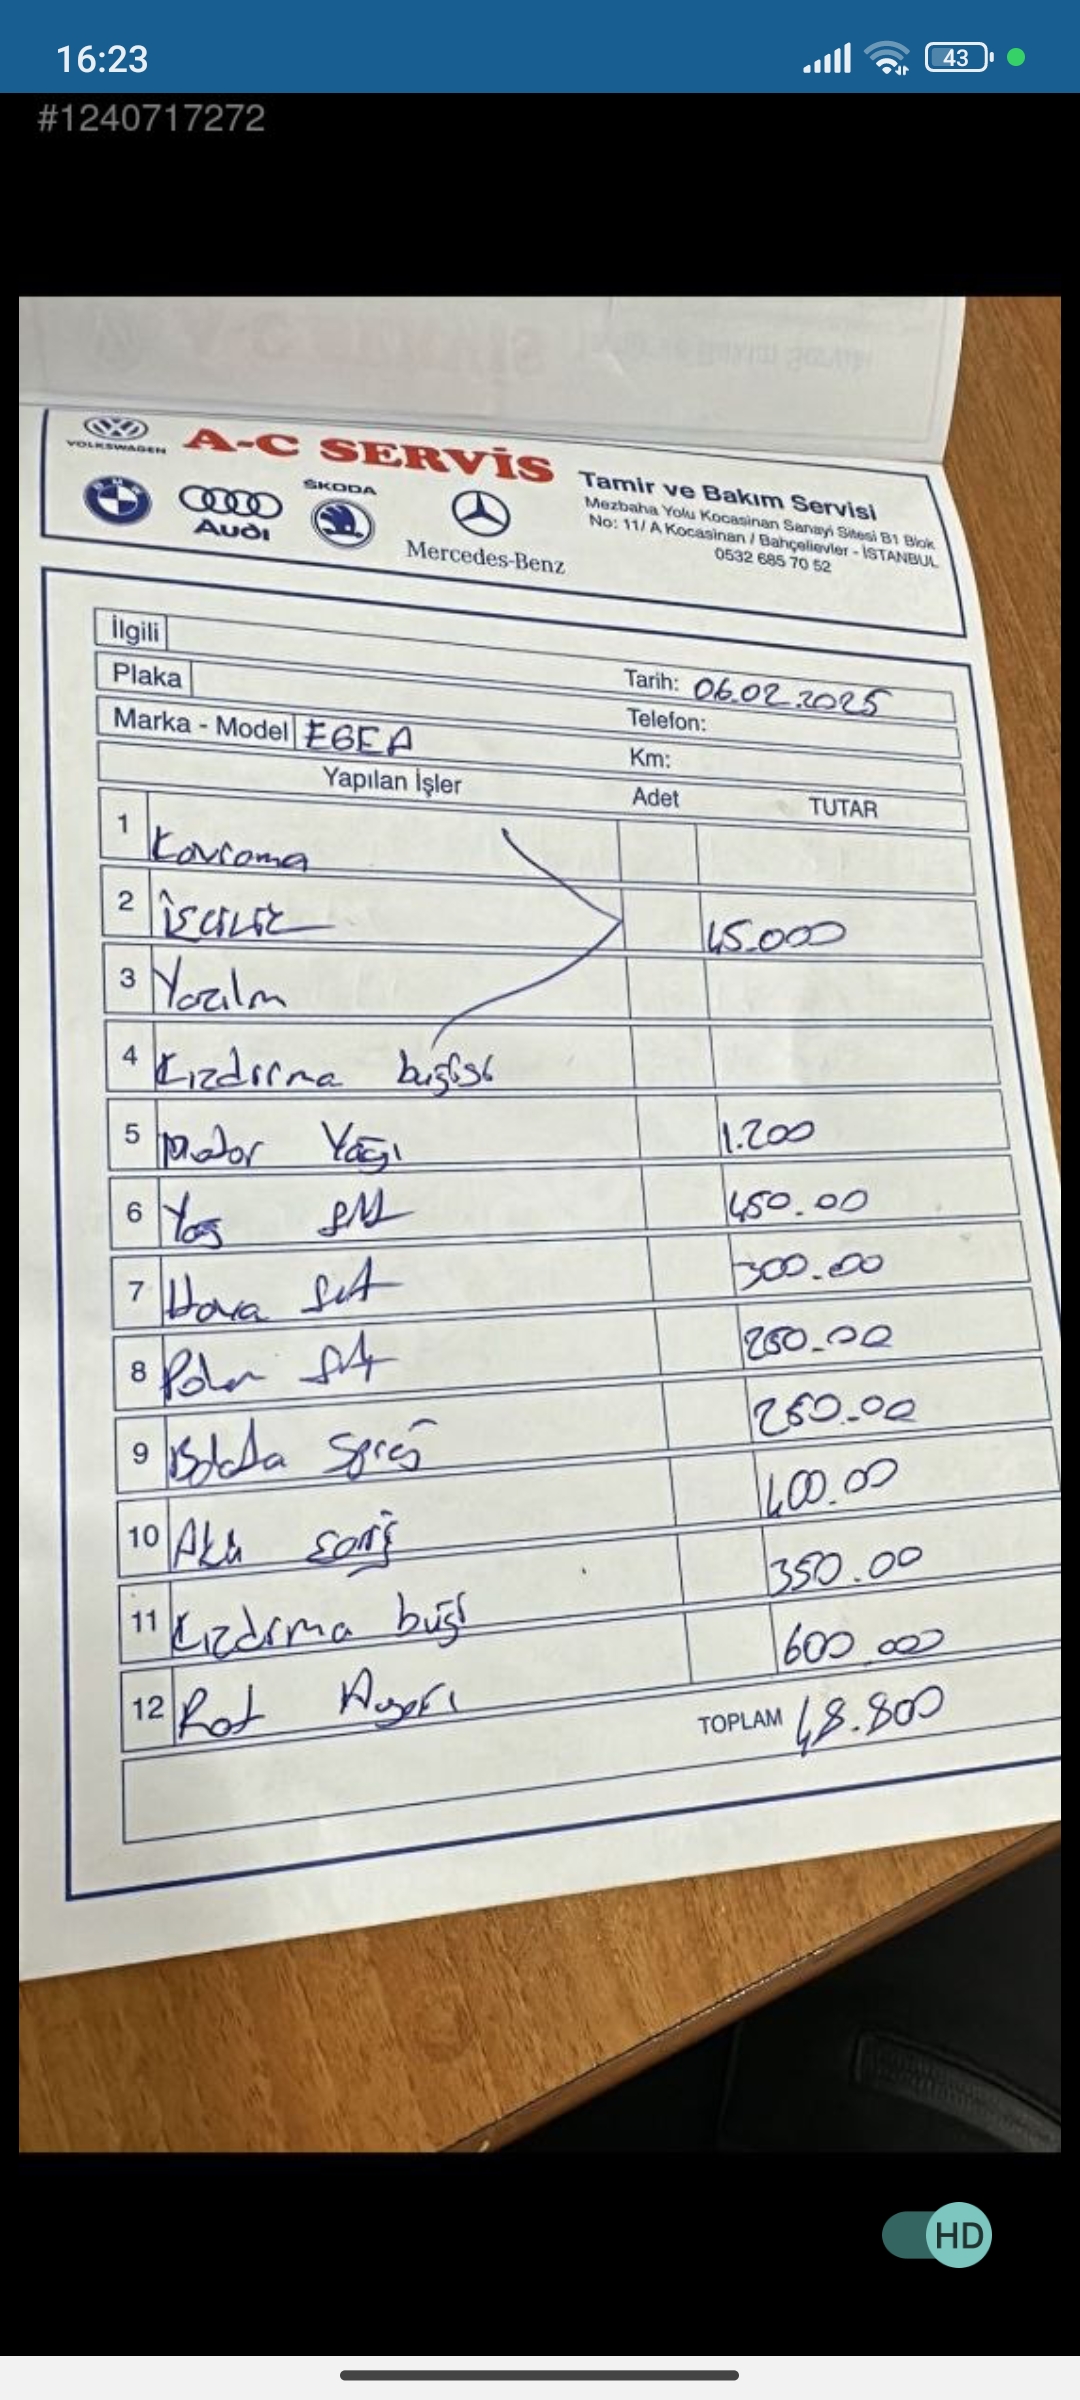 16:23
43
#1240717272
VOLKSWAGEN
A-C SERVİS
BMW
Audi
ŠKODA
Mercedes-Benz
Tamir ve Bakım Servisi
Mezbaha Yolu Kocasinan Sanayi Sitesi B1 Blok
No: 11/ A Kocasinan / Bahçelievler - İSTANBUL
0532 685 70 52
İlgili
Plaka
Tarih: 06.02.2025
Telefon:
Marka - Model EGEA
Km:
Yapılan İşler Adet TUTAR
1 Kavrama
2 İşçilik 45.000
3 Yazılm
4 Kızdırma bujisi
5 Motor Yağı 1.200
6 Yağ 450.00
7 Hava 300.00
8 Polen 250.00
9 Balata 250.00
10 Akü 400.00
11 Kızdırma buji 350.00
12 Rot Ayarı 600.000
TOPLAM 48.800
HD